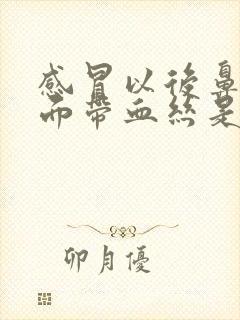 感冒以後鼻
而帶血絲是
卯月優